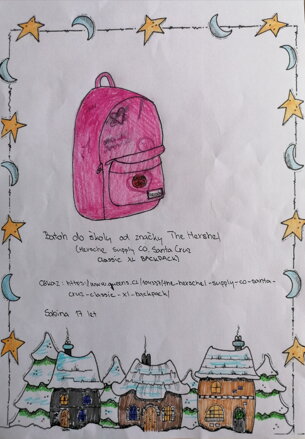 Batoh do školy od značky The Hershel
(Herschel Supply CO. Santa Cruz
Classic XL BACKPACK)
Obraz: https://www.queens.cz/
the-herschel-supply-co-santa-
cruz-classic-xl-backpack/
Sabina 17 let